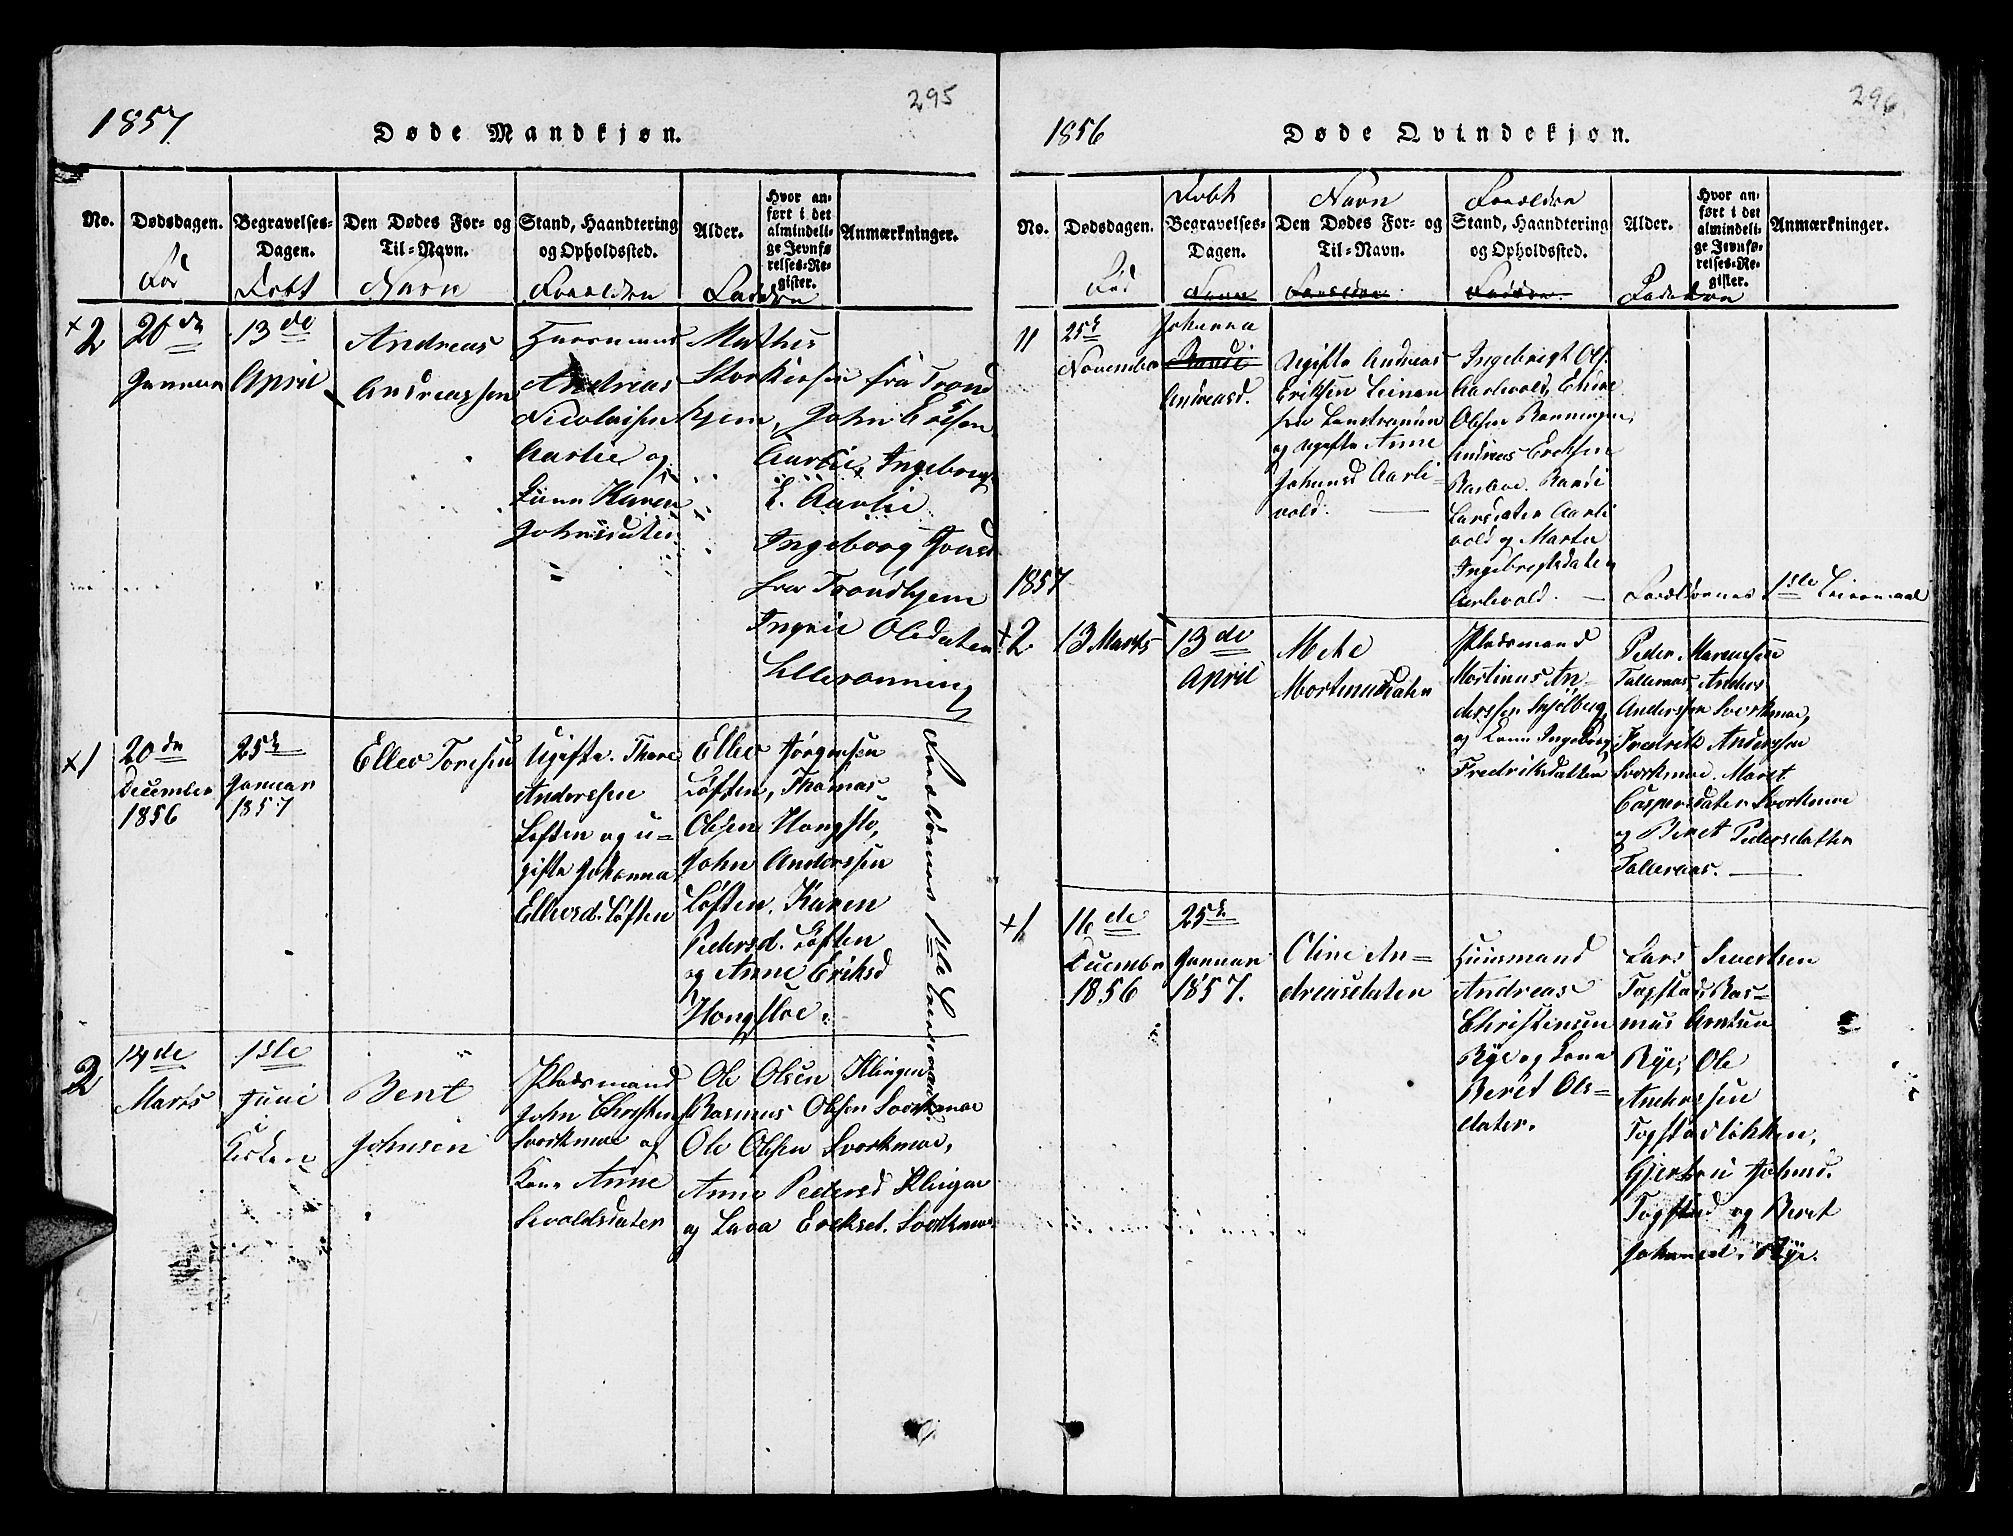 295
1857
Døde Mandkjøn.
No.
Dødsdagen.
Begravelses-
Dagen.
Den Dødes For- og
Til-Navn.
Stand, Haandtering
og Opholdssted.
Alder.
Hvor an-
ført i det
almindeli-
ge Jevnfø-
relses-Re-
gister.
Anmærkninger.
Fød
Døbt
Navn
Forældre
Faddere
+2
26de
Januar
13de
April
Andreas
Andreassen
Huusmand
Andreas
Nicolaisen
Aarlie og
Karen
Johnsdater
Mathis
Størkersen fra Trond
hjem, John Eolsen
Aarlie, Ingeborg
E. Aarlie
Ingeborg Jonsd
fra Trondhjem
Ingrie Olesdaten
Lilleronning
+1
20de
December
1856
25de
Januar
1857
Ellev Toresen
Ugifte. Thore
Anderssen
Løften og u-
gifte Johanna
Ellevsd. Løften
Ellev Jørgensen
Løften, Thomas
Olsen Hongslo,
John Anderssen
Løften. Karen
Pedersd. Løften
og Anne Eriksd
Hongsloe.
Forældrenes 1ste Leiermaal
2
14de
Marts
1ste
Juni
Kirken
Bent
Johnsen
Pladsmand
John Christen
Svorkmoe og
Kone Anne
Sivoldsdater
Ole Olsen Klingen
Rasmus Olsen Svorkmoe
Ole Olsen Svorkmoe,
Anne Pedersd Klingen
og Lava Ericksd. Svorkmoe
296
1856
Døde Qvindekjøn.
Døbt
Navn
Forældre
No.
Dødsdagen.
Begravelses-
Dagen.
Den Dødes For- og
Til-Navn.
Stand, Haandtering
og Opholdssted.
Alder.
Hvor an-
ført i det
almindeli-
ge Jevnfø-
relses-Re-
gister.
Anmærkninger.
Fød
Navn
Forældre
Faddere
Faddere
11
25de
November
Johanna
Randi
Andreasd.
Ugifte Andreas
Eriksen Leinan
og ugifte Anne
Johansd Aarli-
vold.
Ingebrigt Ols.
Aarlivold, Ehine
Olsen Rønningen,
Andreas Eriksen
Rasboe. Randi
Larsdater Aarli
vold og Marta
Ingebrigtsdater
Aarlivold.
Forældrenes 1ste Leiermaal
1857
+2
13 Marts
13de
April
Mete
Mortinusdater
Pladsmand
Mortinus An-
derssen Snjølberg
og Kone Ingeborg
Fredriksdatter
Peder Marcussen
Talleraas Anders
Anderssen Svorkmoe,
Fredrik Anderssen
Svorkmoe. Maret
Caspersdater Svorkmoe
og Beret Pedersdatter
Talleraas.
+1
16de
December
1856
25de
Januar
1857.
Oline An-
dreasdaten
Huusmand
Andreas
Christensen
Rye og Kone
Beret Ols-
dater.
Lars Sivertsen
Togstad, Ras-
mus Arntsen
Rye, Ole
Anderssen
Togstadløkken,
Gjertru Johnsd.
Togstad og Beret
Johansd. Rye.